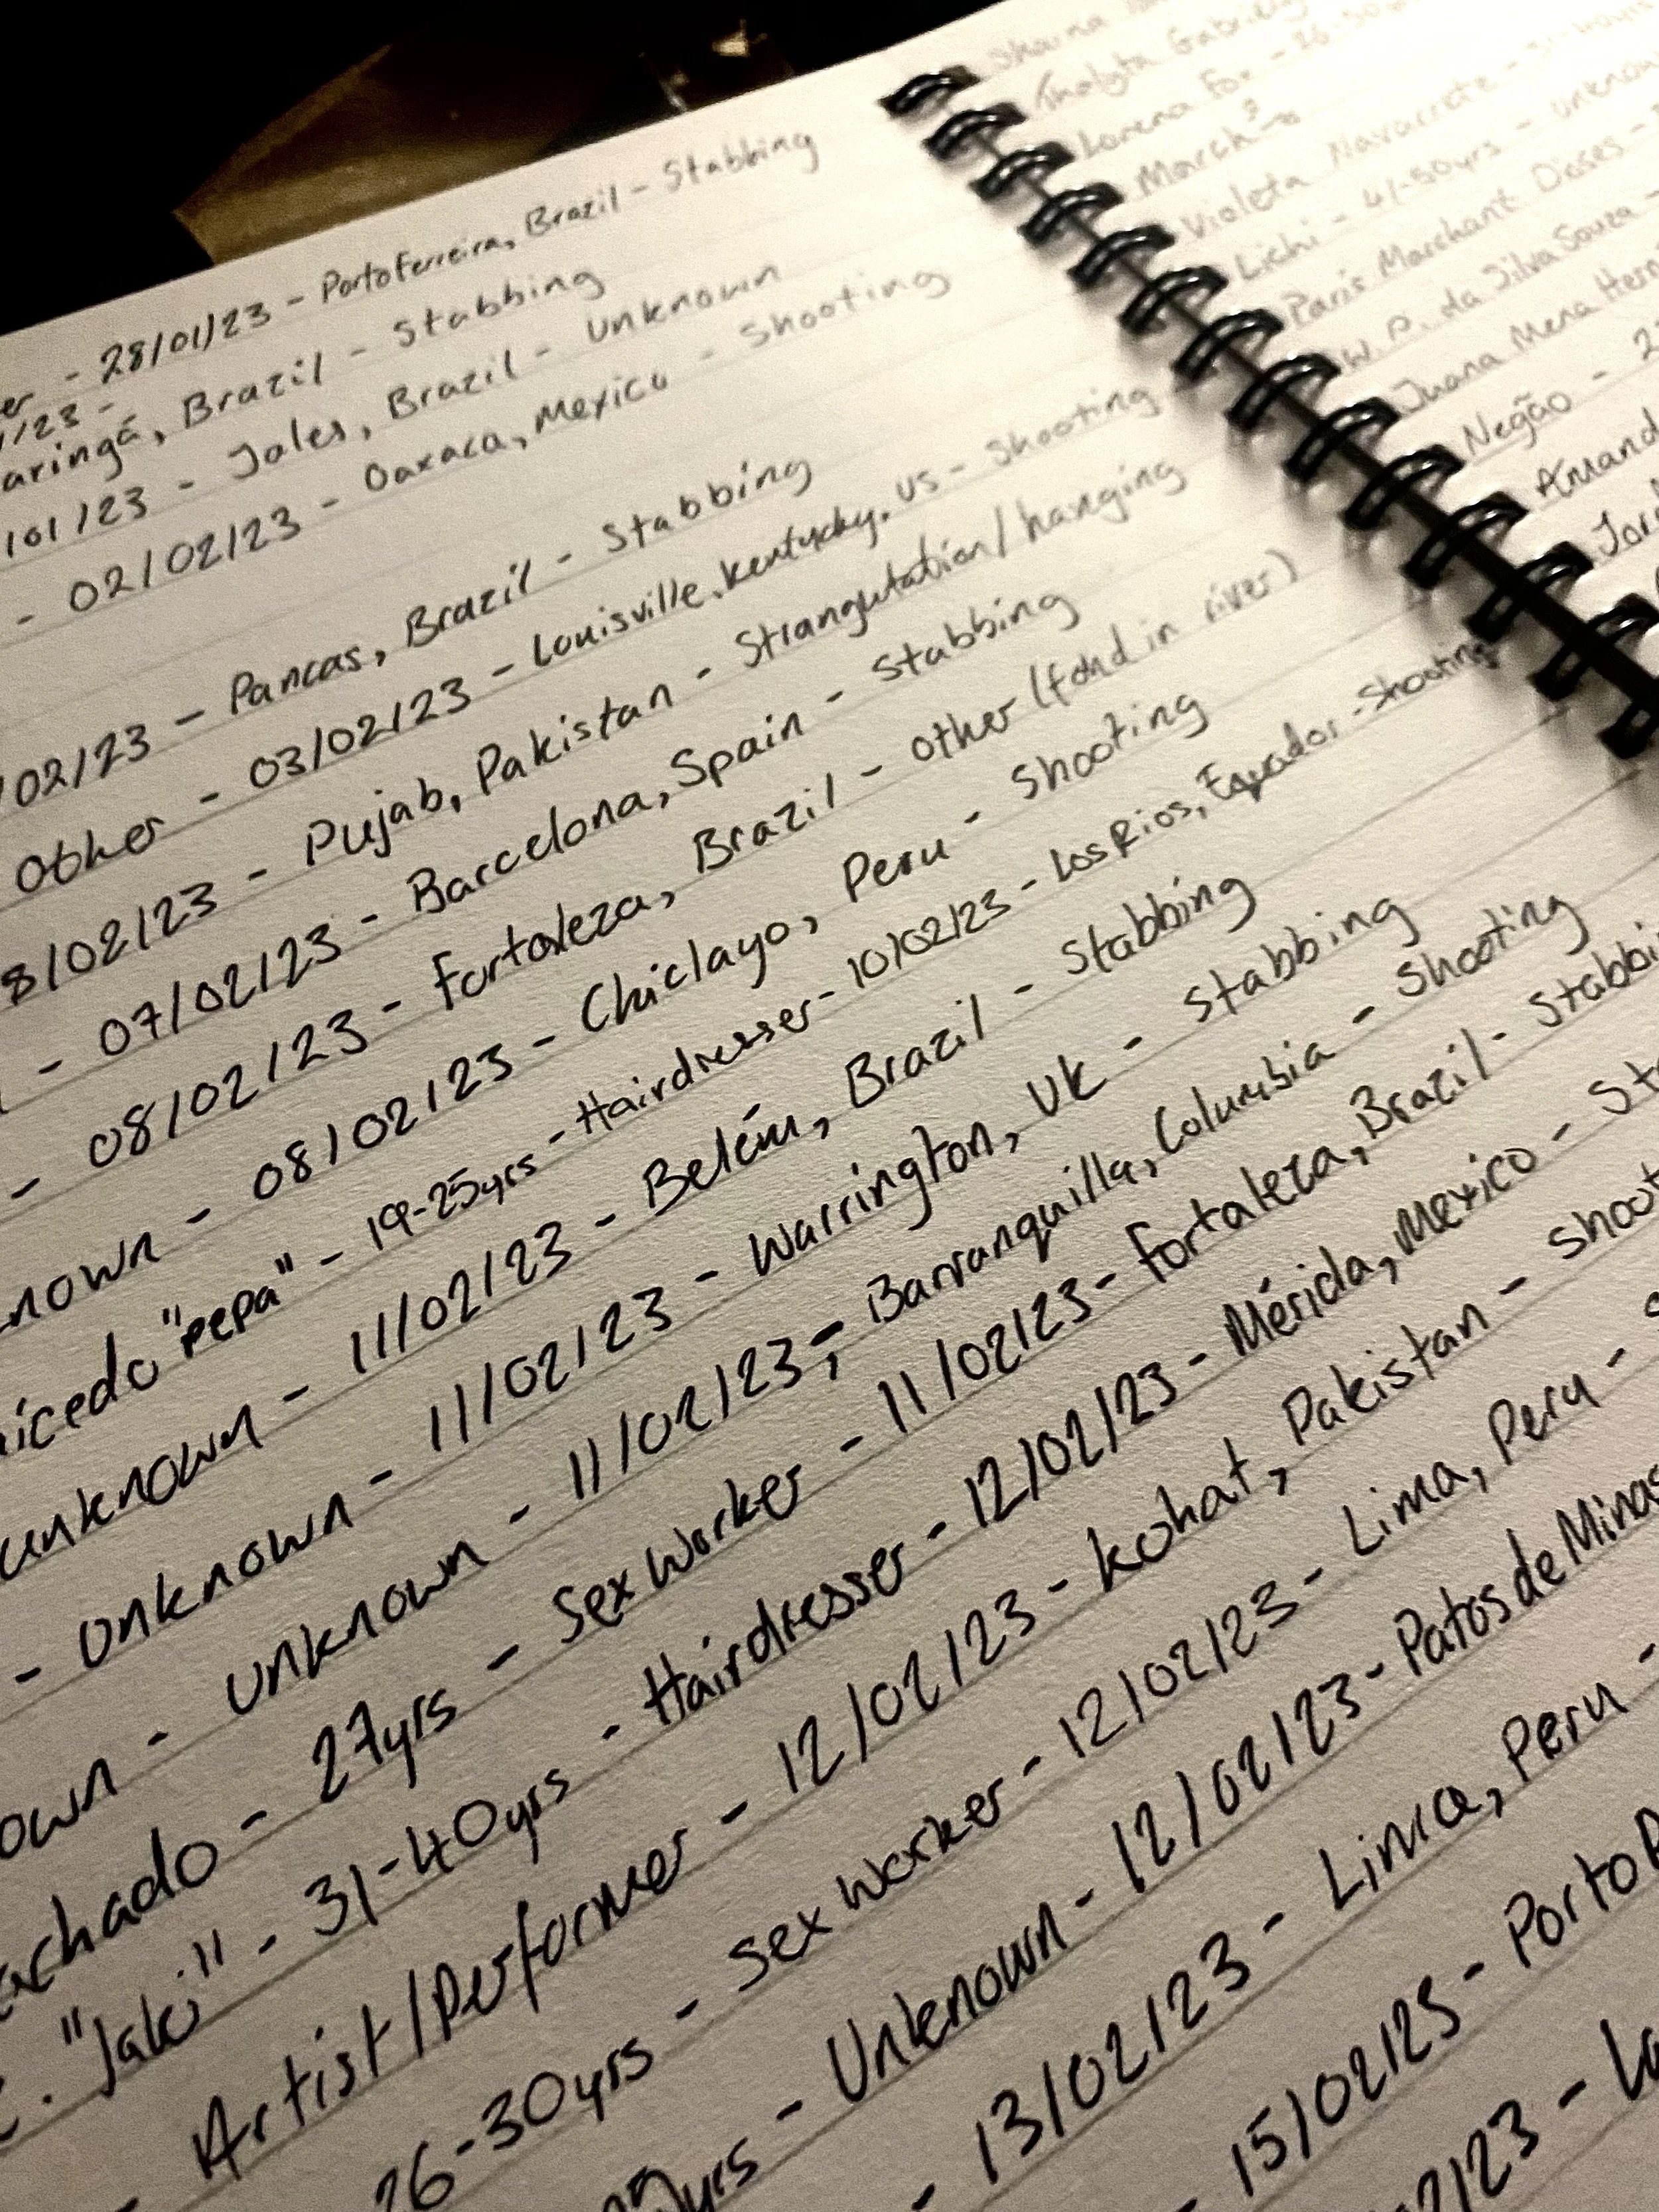 er - 28/01/23 - Porto Ferreira, Brazil - Stabbing
/23 -
aringá, Brazil - Stabbing
/01/23 - Jales, Brazil - Unknown
- 02/02/23 - Oaxaca, Mexico - Shooting
/02/23 - Pancas, Brazil - Stabbing
Other - 03/02/23 - Louisville, Kentucky, US - Shooting
8/02/23 - Pujab, Pakistan - Strangulation/hanging
- 07/02/23 - Barcelona, Spain - Stabbing
- 08/02/23 - Fortaleza, Brazil - Other (fond in river)
nown - 08/02/23 - Chiclayo, Peru - Shooting
icedo "pepa" - 19-25yrs - Hairdresser - 10/02/23 - Los Rios, Equador - Shooting
unknown - 11/02/23 - Belém, Brazil - Stabbing
- Unknown - 11/02/23 - Warrington, UK - Stabbing
own - Unknown - 11/02/23 - Barranquilla, Columbia - Shooting
achado - 27yrs - Sex Worker - 11/02/23 - Fortaleza, Brazil - Stabbi
. "Jaki" - 31-40yrs - Hairdresser - 12/02/23 - Mérida, Mexico - St
- Artist/Performer - 12/02/23 - Kohat, Pakistan - Shoot
26-30yrs - Sex Worker - 12/02/23 - Lima, Peru - S
yrs - Unknown - 12/02/23 - Patos de Minas
- 13/02/23 - Lima, Peru -
- 15/02/23 - Porto
2/23 - La
Lorena Fox - 26-30
March
Violeta Navarrete - 31-40yrs
Lichi - 41-50yrs - unknow
Paris Marchant Dioses -
W. P. da Silva Souza -
Juana Mena Hern
Negão - 2
Amand
Jor